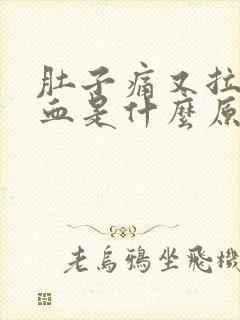 肚子痛又拉
血是什麼原
老烏鴉坐飛機